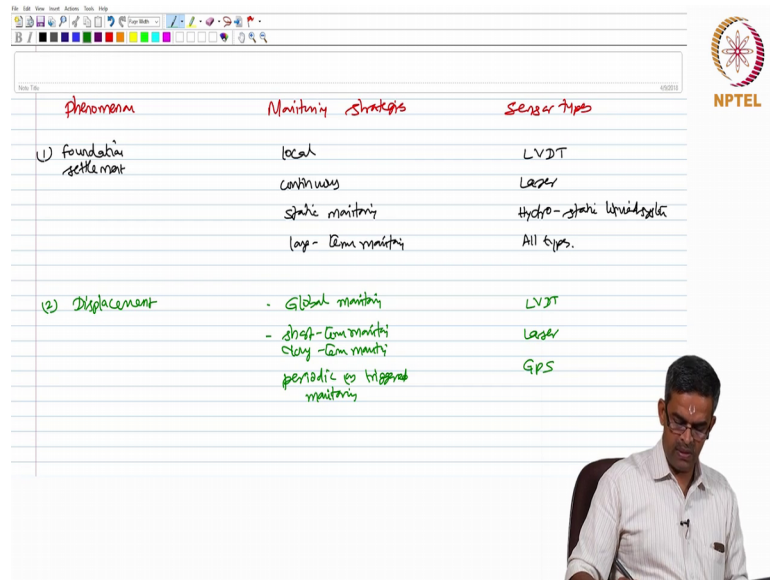 File Edit View Insert Actions Tools Help
Page Width
B I
Note Title
4/9/2018
NPTEL
Phenomenon Monitoring strategies Sensor types
(1) Foundation settlement
local LVDT
continuous Laser
static monitoring Hydro-static liquid system
long-term monitoring All types.
(2) Displacement - Global monitoring LVDT
- short-term monitoring Laser
long-term monitoring
periodic or triggered monitoring
GPS